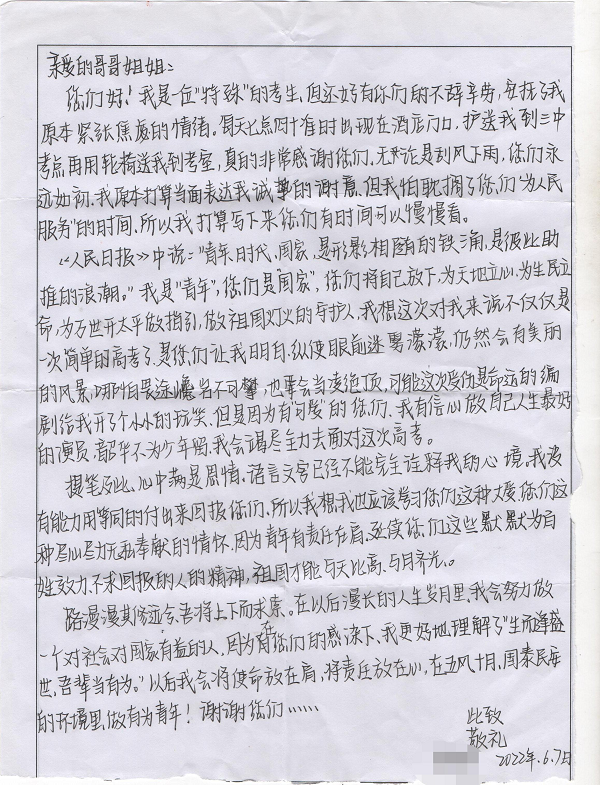 亲爱的哥哥姐姐:
您们好!我是一位"特殊"的考生,但还好有您们的不辞辛劳,安抚了我
原本紧张焦虑的情绪。每天七点四十准时出现在酒店门口,护送我到三中
考点再用轮椅送我到考室,真的非常感谢您们。无论是刮风下雨,您们永
远如初。我原本打算当面表达我诚挚的谢意,但我怕耽搁了您们"为人民
服务"的时间,所以我打算写下来您们有时间可以慢慢看。
《人民日报》中说:"青年时代,国家,是形影相随的铁三角,是彼此助
推的浪潮。"我是"青年",您们是"国家",您们将自己放下,为天地立心,为生民立
命,为万世开太平做指引,做祖国灯火的守护人,我想这次对我来说不仅仅是
一次简单的高考了,是您们让我明白,纵使眼前迷雾濛濛,仍然会有美丽
的风景,哪怕畏途巉岩不可攀,也要会当凌绝顶,可能这次受伤是命运的编
剧给我开了个小小的玩笑,但是因为有"可爱"的您们,我有信心做自己人生最好
的演员,韶华不为少年留,我会竭尽全力去面对这次高考。
提笔及此,心中满是恩情,语言文字已经不能完全诠释我的心境。我没
有能力用等同的付出来回报您们,所以我想我也应该学习您们这种大爱,您们这
种尽心尽力无私奉献的情怀,因为青年有责任在肩,延续您们这些默默为百
姓效力,不求回报的人的精神,祖国才能与天比高,与日齐光。
路漫漫其修远兮,吾将上下而求索。在以后漫长的人生岁月里,我会努力做
一个对社会对国家有益的人,因为在有您们的感染下,我更好地理解了"生而逢盛
世,吾辈当有为。"以后我会将使命放在肩,将责任放在心,在五风十月,国泰民安
的环境里,做有为青年!谢谢您们……
此致
敬礼
2022年.6.7日